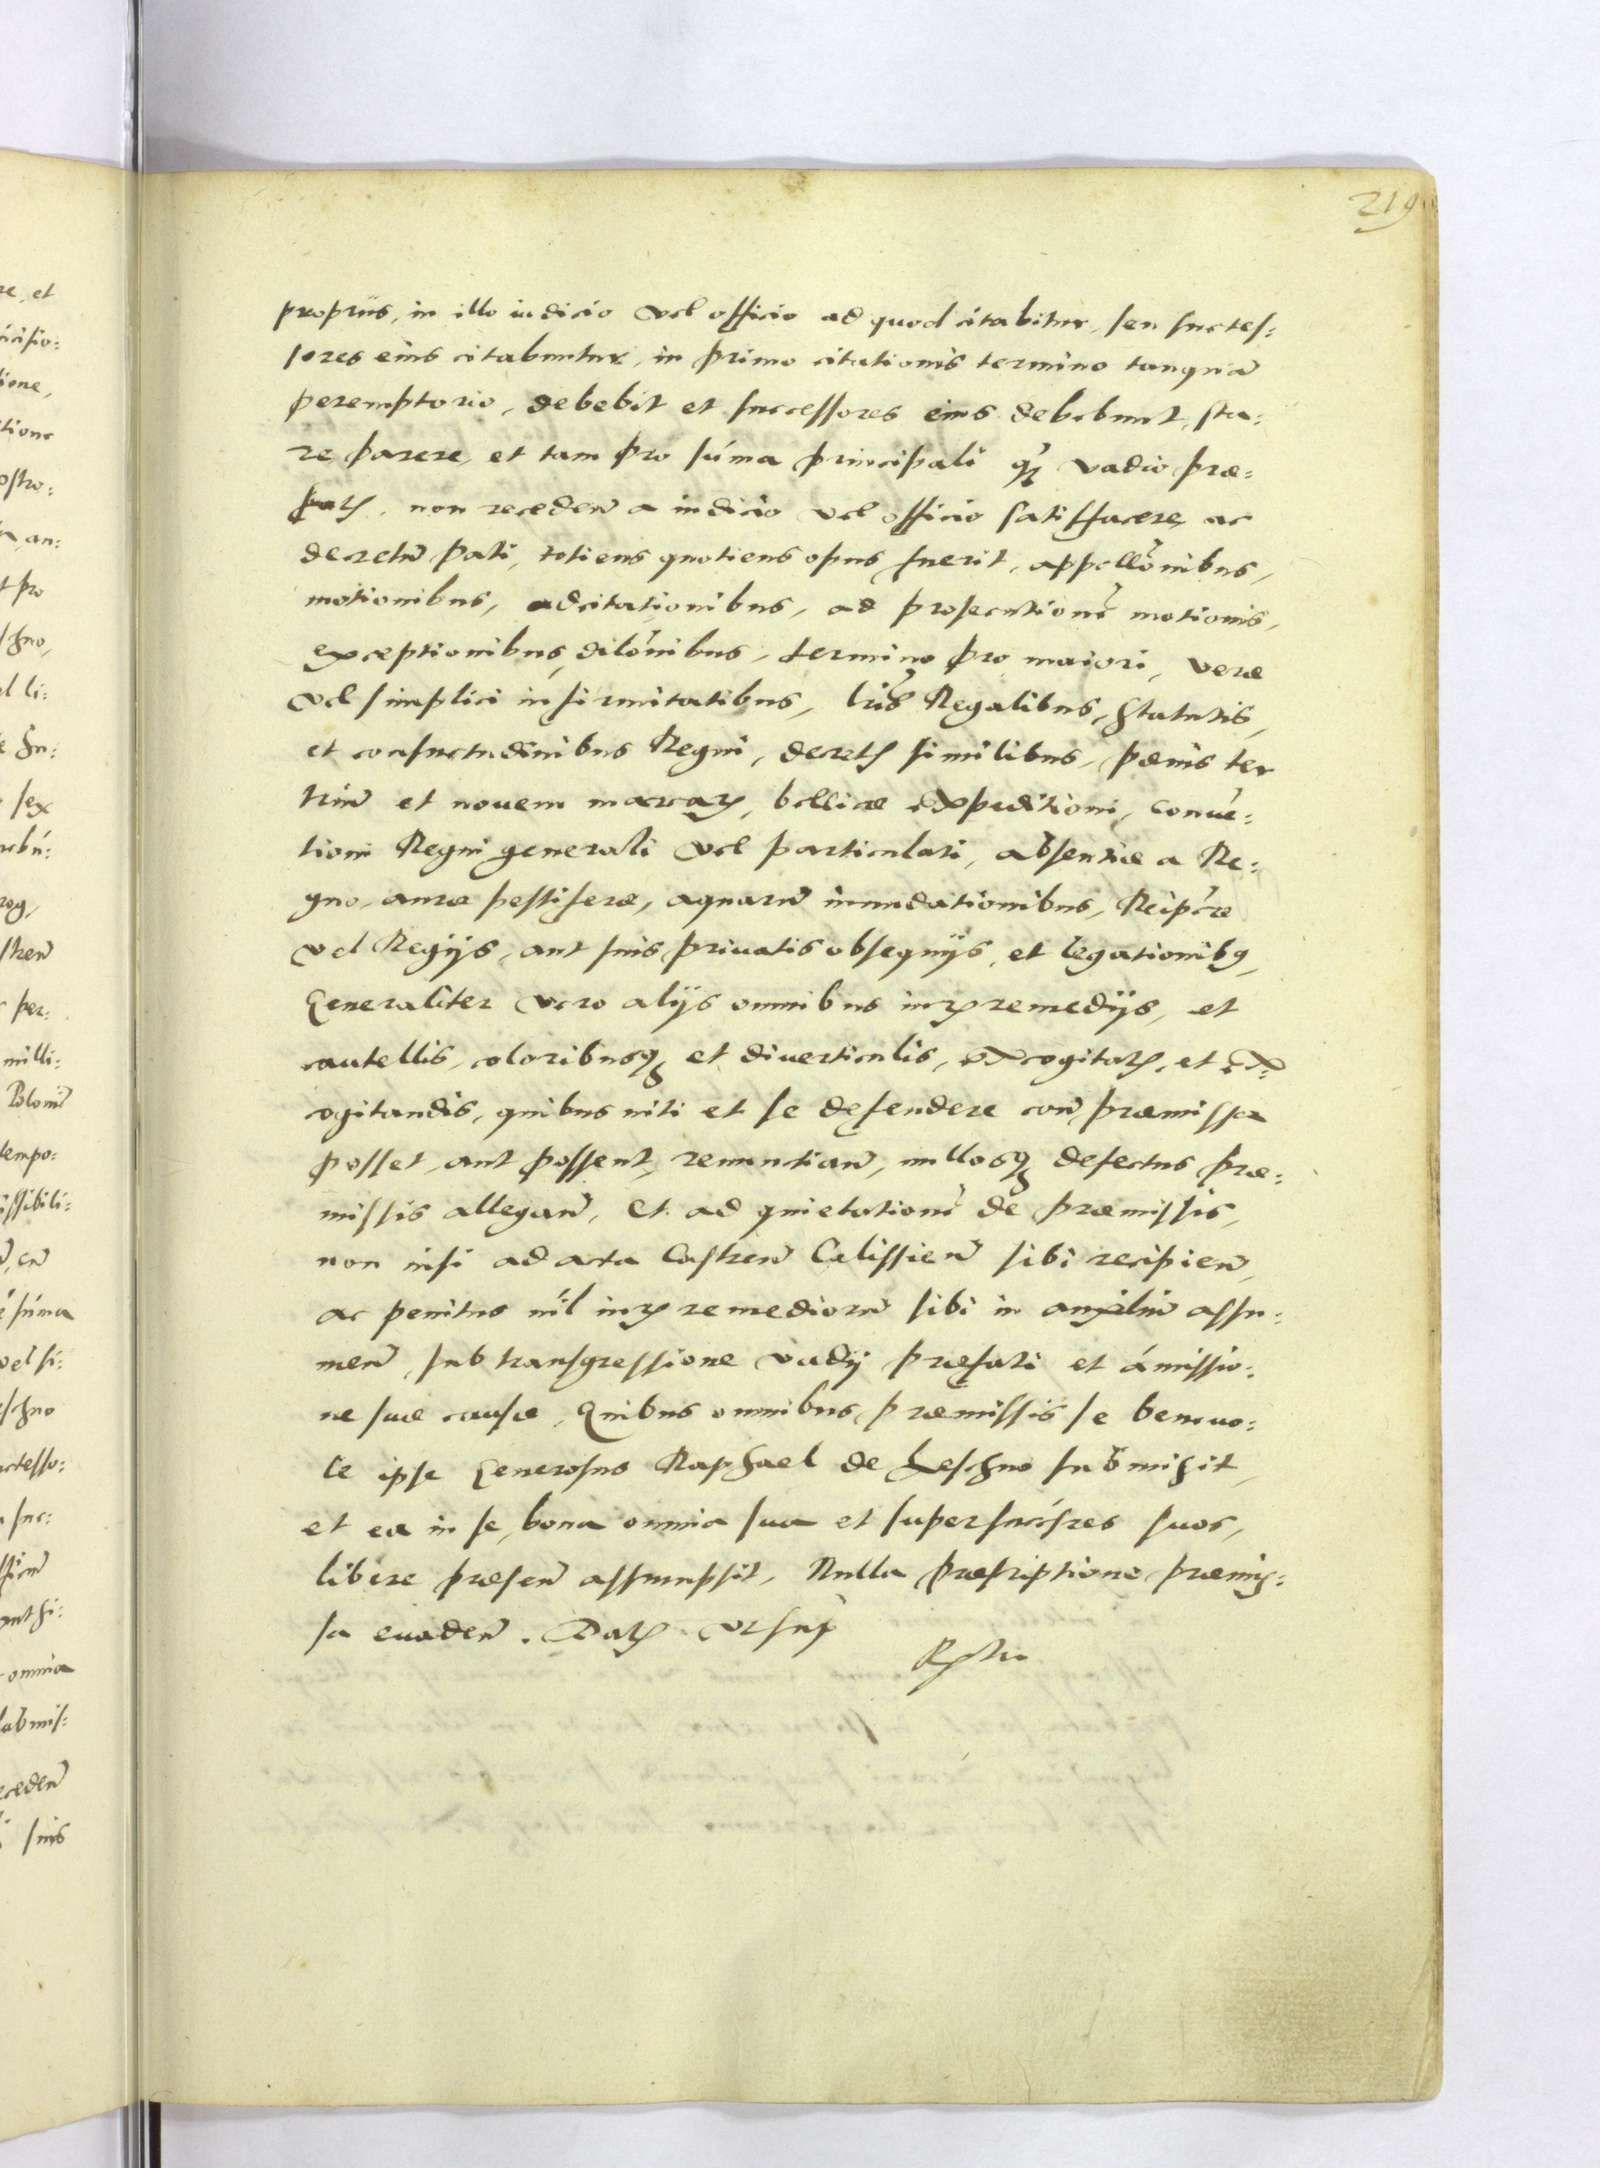 219
propriis, in illo iudicio vel officio ad quod citabitur, seu succes:
sores eius citabuntur, in primo citationis termino tanquã
peremptorio, debebit et successores eius debebunt, sta:
re parere, et tam pro súma principali q̃ vadio præ:
non receden̄ a iudicio vel officio satisfacere, ac
decretũ pati, totiens quotiens opus fuerit, appellõnibus,
motionibus, adcitationibus, ad prosecutionẽ motionis,
exceptionibus, dilõnibus, termino pro maiori, veræ
vel simplici infirmitatibus, lr̃is Regalibus, Statutis,
et consuetudinibus Regni, similibus, pænis ter
trium̃ et nouem marcaꝝ, bellicæ expeditioni, conuẽ:
tioni Regni generali vel particulari, absentiæ a Re:
gno, auræ pestiferæ, aquarũ inundationibus, Reip̃cæ
vel Regijs, aut suis priuatis obsequijs, et legationibꝫ,
Generaliter vero alijs omnibus iurꝫ remedijs, et
cautellis, coloribusqꝫ et diuerticulis, excogitatꝫ, et ex:
cogitandis, quibus niti et se defendere con̄ præmissa
posset, aut possent, renuntian̄, nullosqꝫ defectus præ:
missis allegan̄, Et ad quietationẽ de præmissis,
non nisi ad acta Castren̄ Calissien̄ sibi recipien̄,
ac penitus nil iurꝫ remediorũ sibi in auxiliũ assu:
men̄, sub transgressione vadij præfati et ámissio:
ne suæ causæ, Quibus omnibus præmissis se beneuo:
le ipse Generosus Raphael de Leschno submisit,
et ea in se, bona omnia sua et super succ̃res suos,
libere præsen̄ assumpsit, Nulla præscriptione præmis:
sa euaden̄. Datꝫ vt sup̃